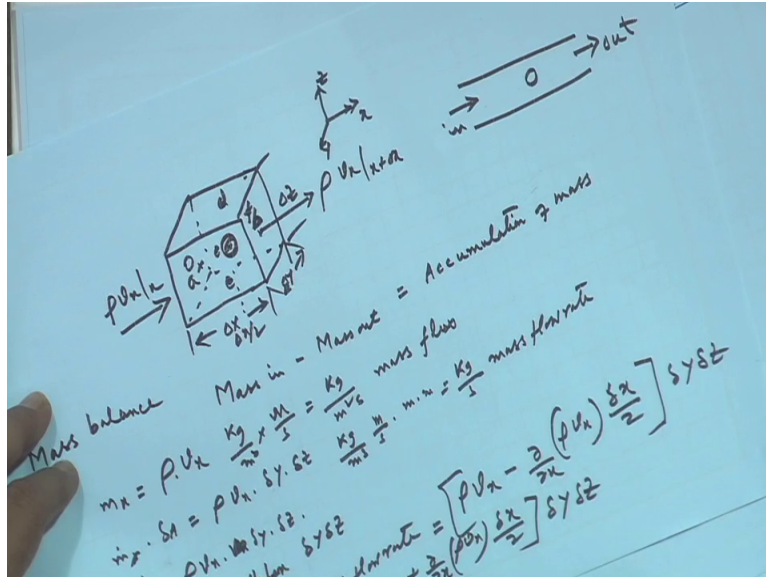 z
x
y
out
in
ρ υx|x+Δx
Δz
d
b
a
e
Δy
ρυx|x
Δx
Δx/2
Mass balance Mass in - Mass out = Accumulation of mass
mx = ρ.υx Kg/m³ × m/s = Kg/m²s mass flux
ṁx. δA = ρυx. δy. δz Kg/m³ m/s . m.m = Kg/s mass flowrate
ρυx. δy. δz.
δyδz
flowrate = [ρυx - ∂/∂x (ρυx) δx/2] δyδz
∂/∂x (ρυx) δx/2] δyδz